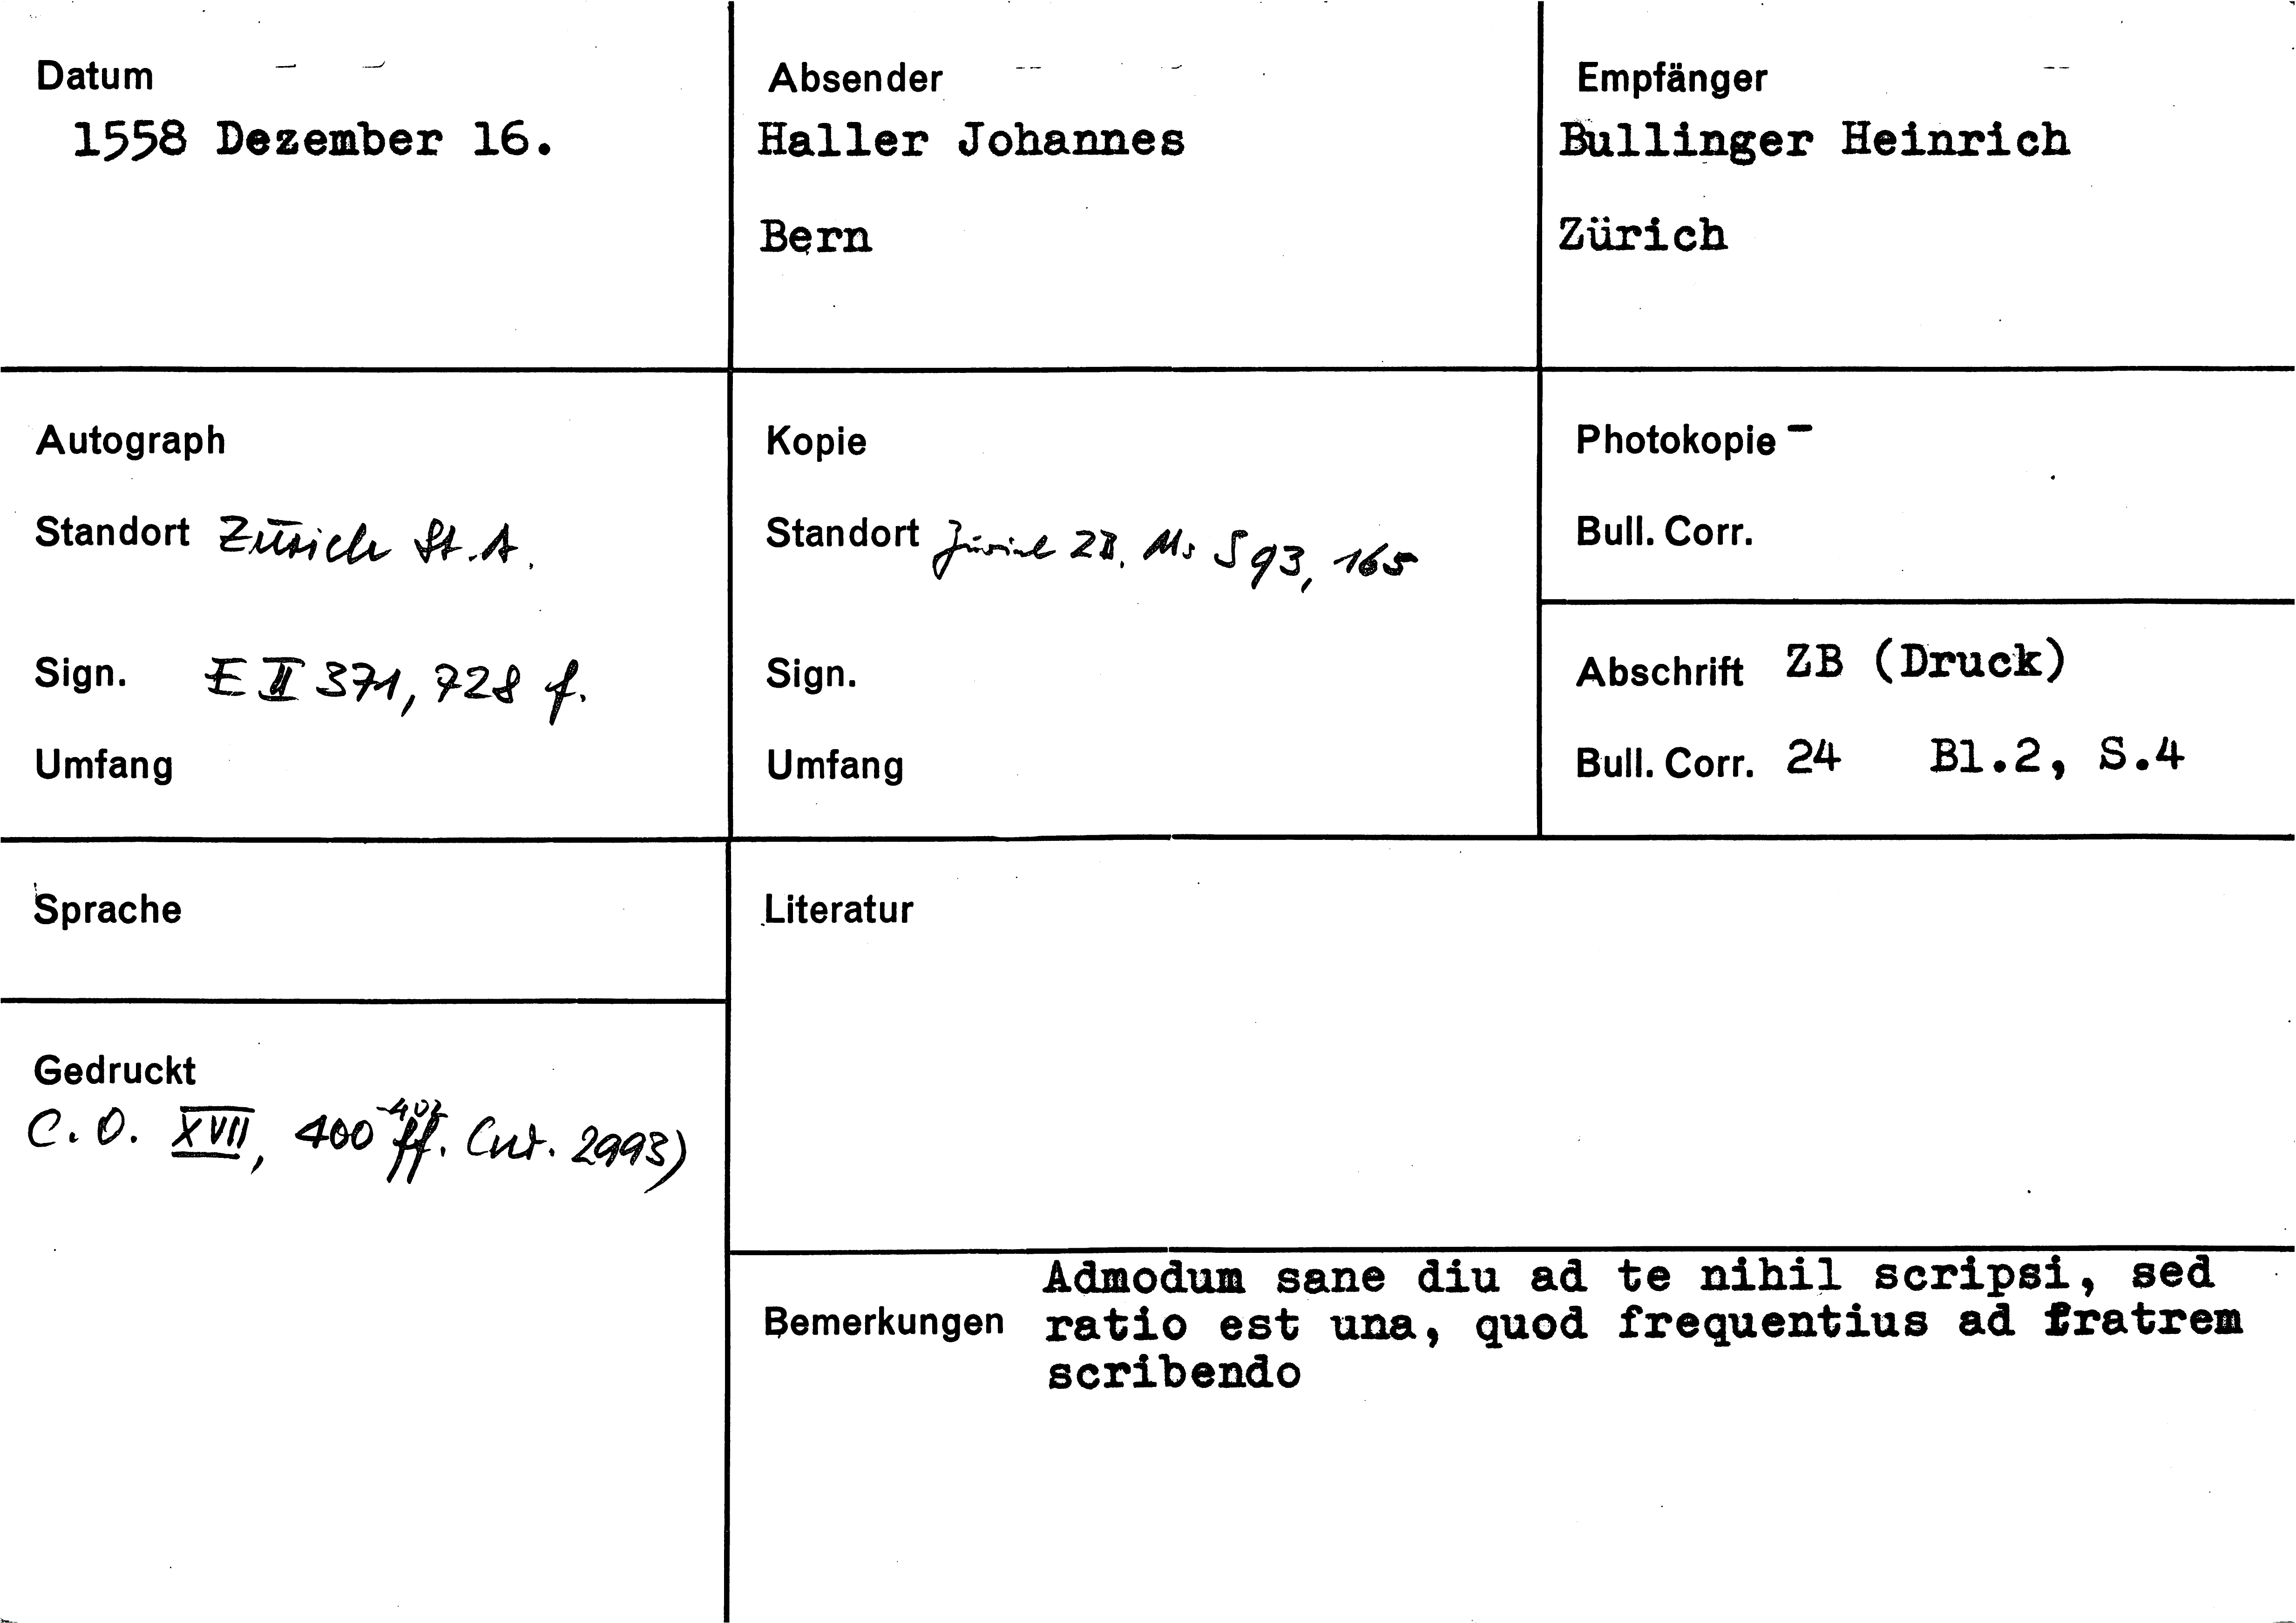 Datum
1558 Dezember 16.
Absender
Haller Johannes
Bern
Empfänger
Bullinger Heinrich
Zürich
Autograph
Standort Zürich St.A.
Sign. E II 371, 728 f.
Umfang
Kopie
Standort Zürich ZB, Ms S 93, 165
Sign.
Umfang
Photokopie -
Bull. Corr.
Abschrift ZB (Druck)
Bull. Corr. 24 Bl.2, S.4
Sprache
Literatur
Gedruckt
-402
C. O. XVII, 400 ff. (nr. 2993)
Bemerkungen
Admodum sane diu ad te nihil scripsi, sed
ratio est una, quod frequentius ad fratrem
scribendo